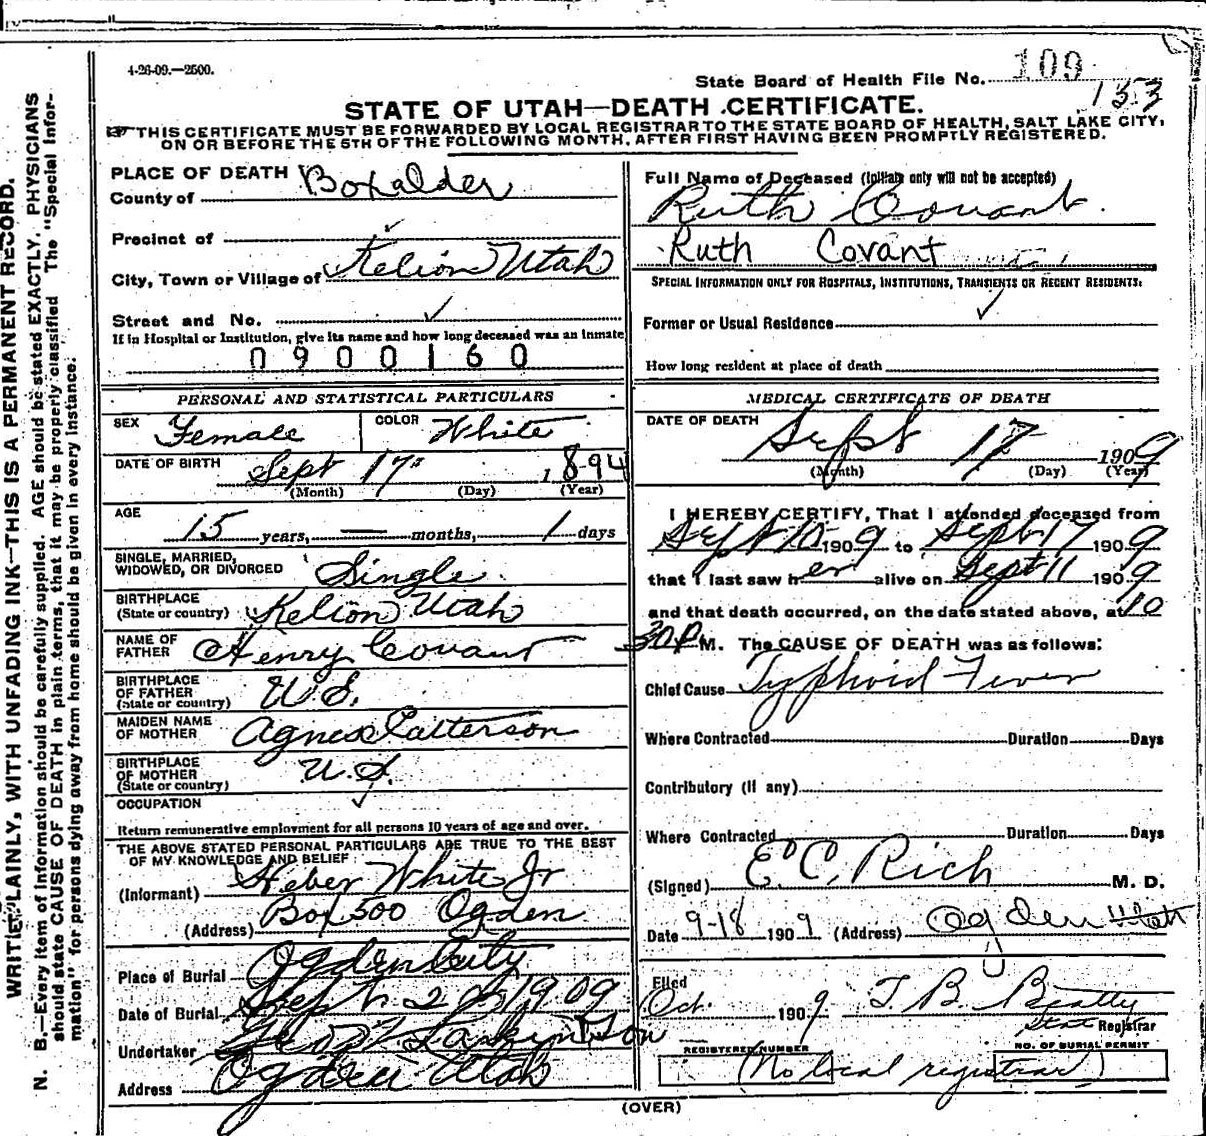 4-26-09.—2500.
State Board of Health File No. 109
133
STATE OF UTAH—DEATH CERTIFICATE.
☞ THIS CERTIFICATE MUST BE FORWARDED BY LOCAL REGISTRAR TO THE STATE BOARD OF HEALTH, SALT LAKE CITY,
ON OR BEFORE THE 5TH OF THE FOLLOWING MONTH, AFTER FIRST HAVING BEEN PROMPTLY REGISTERED.
WRITE PLAINLY, WITH UNFADING INK—THIS IS A PERMANENT RECORD.
N. B.—Every item of information should be carefully supplied. AGE should be stated EXACTLY. PHYSICIANS
should state CAUSE OF DEATH in plain terms, that it may be properly classified. The "Special Infor-
mation" for persons dying away from home should be given in every instance.
PLACE OF DEATH
County of Boxalder
Precinct of ✓
City, Town or Village of Kelion Utah
Street and No. ✓
If in Hospital or Institution, give its name and how long deceased was an inmate
0900160
PERSONAL AND STATISTICAL PARTICULARS
SEX Female COLOR White
DATE OF BIRTH Sept 17 1894
(Month) (Day) (Year)
AGE 15 years, — months, 1 days
SINGLE, MARRIED,
WIDOWED, OR DIVORCED Single
BIRTHPLACE
(State or country) Kelion Utah
NAME OF
FATHER Henry Covant
BIRTHPLACE
OF FATHER
(State or country) U.S.
MAIDEN NAME
OF MOTHER Agnes Patterson
BIRTHPLACE
OF MOTHER
(State or country) U.S.
OCCUPATION ✓
Return remunerative employment for all persons 10 years of age and over.
THE ABOVE STATED PERSONAL PARTICULARS ARE TRUE TO THE BEST
OF MY KNOWLEDGE AND BELIEF
(Informant) Heber White Jr
(Address) Box 500 Ogden
Place of Burial Ogden City
Date of Burial Sept. 20 1909
Undertaker Geo W Larkin & Son
Address Ogden Utah
Full Name of Deceased (Initials only will not be accepted)
Ruth Covant.
Ruth Covant
SPECIAL INFORMATION ONLY FOR HOSPITALS, INSTITUTIONS, TRANSIENTS OR RECENT RESIDENTS:
Former or Usual Residence ✓
How long resident at place of death
MEDICAL CERTIFICATE OF DEATH
DATE OF DEATH
Sept 17 1909
(Month) (Day) (Year)
I HEREBY CERTIFY, That I attended deceased from
Sept 10 1909 to Sept 17 1909
that I last saw her alive on Sept 11 1909
and that death occurred, on the date stated above, at 10
30 P M. The CAUSE OF DEATH was as follows:
Chief Cause Typhoid Fever
Where Contracted Duration Days
Contributory (if any)
Where Contracted Duration Days
(Signed) E. C. Rich M. D.
Date 9-18 1909 (Address) Ogden Utah
Filed
Oct. 1909 T. B. Beatty
State Registrar
REGISTERED NUMBER NO. OF BURIAL PERMIT
(No local registrar)
(OVER)